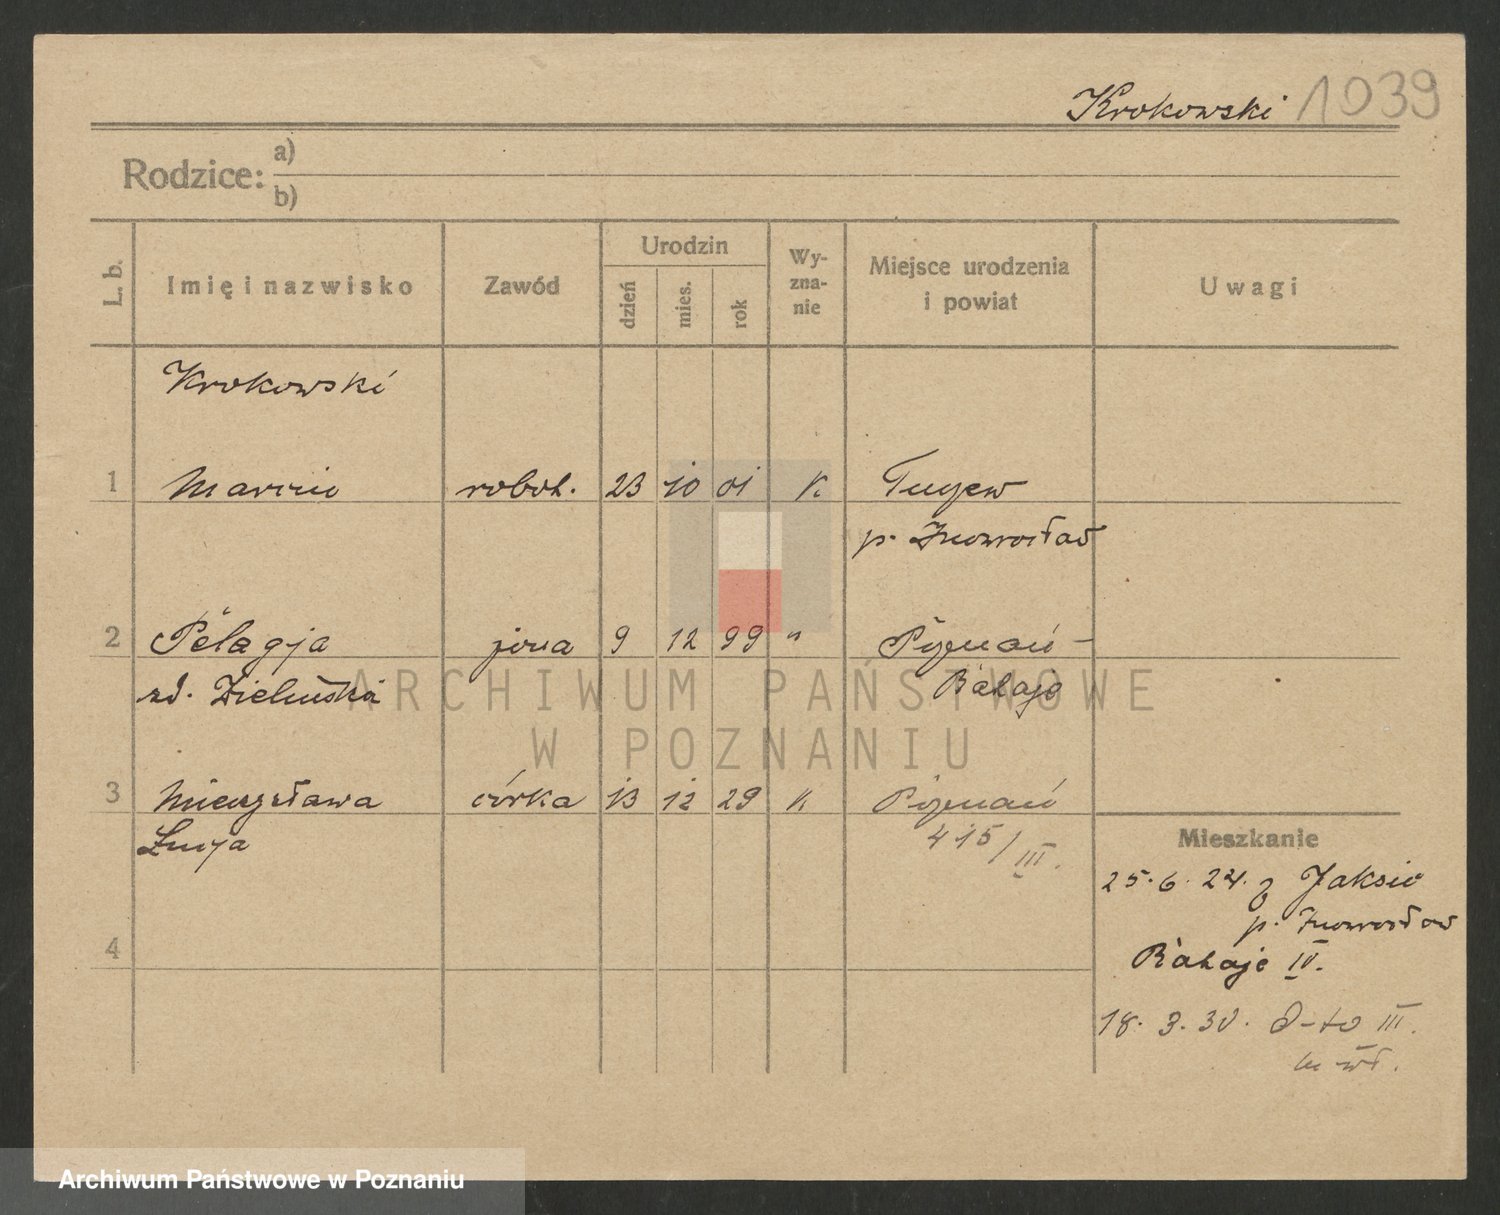 Krokowski 1039
Rodzice: a)
b)
L. b. Imię i nazwisko Zawód Urodzin dzień mies. rok Wy-zna-nie Miejsce urodzenia i powiat Uwagi
Krokowski
1 Marcin robot. 23 10 01 K
p. Inowrocław
2 Pelagja żona 9 12 99 " Poznań -
zd. Zielińska Rataje
3 Mieczysława córka 13 12 29 K Poznań
Łucja 415/III.
Mieszkanie
25. 6. 24. z Jaksic
p. Inowrocław
4 Rataje IV.
18. 3. 30. d-to III.
m wł.
ARCHIWUM PAŃSTWOWE
W POZNANIU
Archiwum Państwowe w Poznaniu